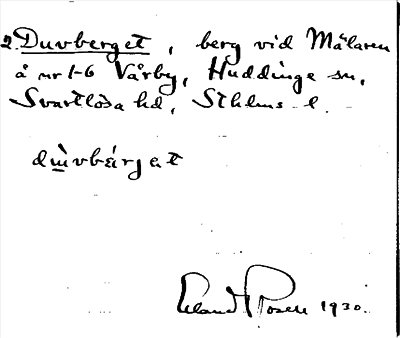 2. Duvberget, berg vid Mälaren
å nr 1-6 Vårby, Huddinge sn,
Svartlösa hd, Sthlms l.
dɯ̀vbärjat
Rosell 1930.